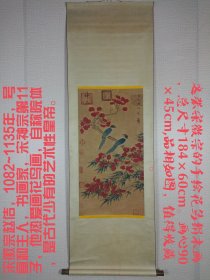 宋徽宗赵佶，1082~1135年，号
宣和主人，书画家，宋神宗第11
子，他热爱画花鸟画，自称院体
，是古代少有的艺术性皇帝。
宋徽宗的手绘花鸟纸本画
，总尺寸184×60cm，画心90
×45cm,品相如图，值得收藏